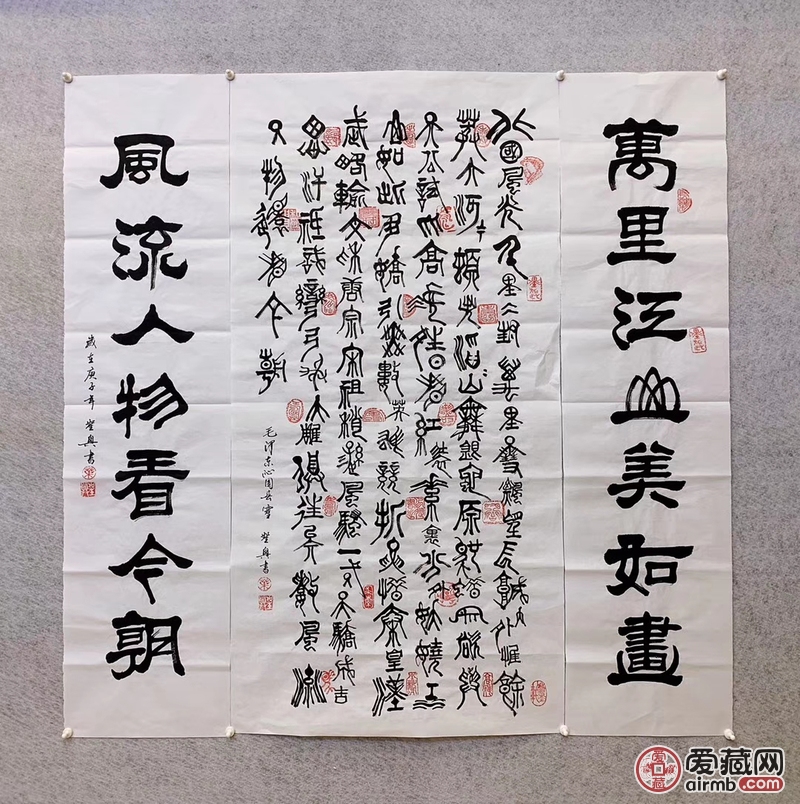 萬里江山美如畫
北國風光千里冰封萬里雪飄望長城內外惟餘
莽莽大河上下頓失滔滔山舞銀蛇原馳蠟象欲與
天公試比高須晴日看紅裝素裹分外妖嬈江
山如此多嬌引無數英雄競折腰惜秦皇漢
武略輸文采唐宗宋祖稍遜風騷一代天驕成吉
思汗祇識彎弓射大雕俱往矣數風流
人物還看今朝
毛澤東沁園春雪 興書
風流人物看今朝
歲在庚子年 興書
爱藏网
airmb.com